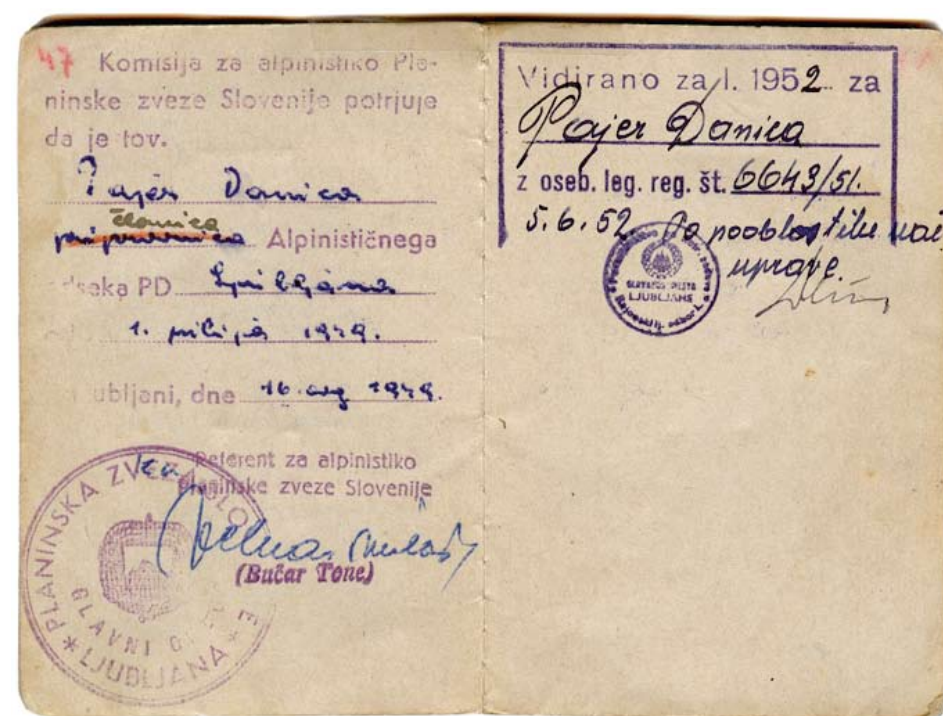 47 Komisija za alpinistiko Pla-
ninske zveze Slovenije potrjuje
da je tov.
Pajer Danica
članica
pripravnica Alpinističnega
odseka PD Ljubljana
1. julija 1949.
Ljubljani, dne 16. avg 1949.
Referent za alpinistiko
Planinske zveze Slovenije
(Bučar Tone)
* PLANINSKA ZVEZA SLOVENIJE *
GLAVNI ODBOR
LJUBLJANA
Vidirano za l. 1952 za
Pajer Danica
z oseb. leg. reg. št. 6643/51.
5.6.52. Po pooblastilu
uprave.
LJUBLJANE